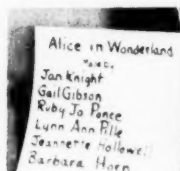 Alice in Wonderland
Made by
Jan Knight
Gail Gibson
Ruby Jo Ponce
Lynn Ann Pille
Jeannette Hollowell
Barbara Horn